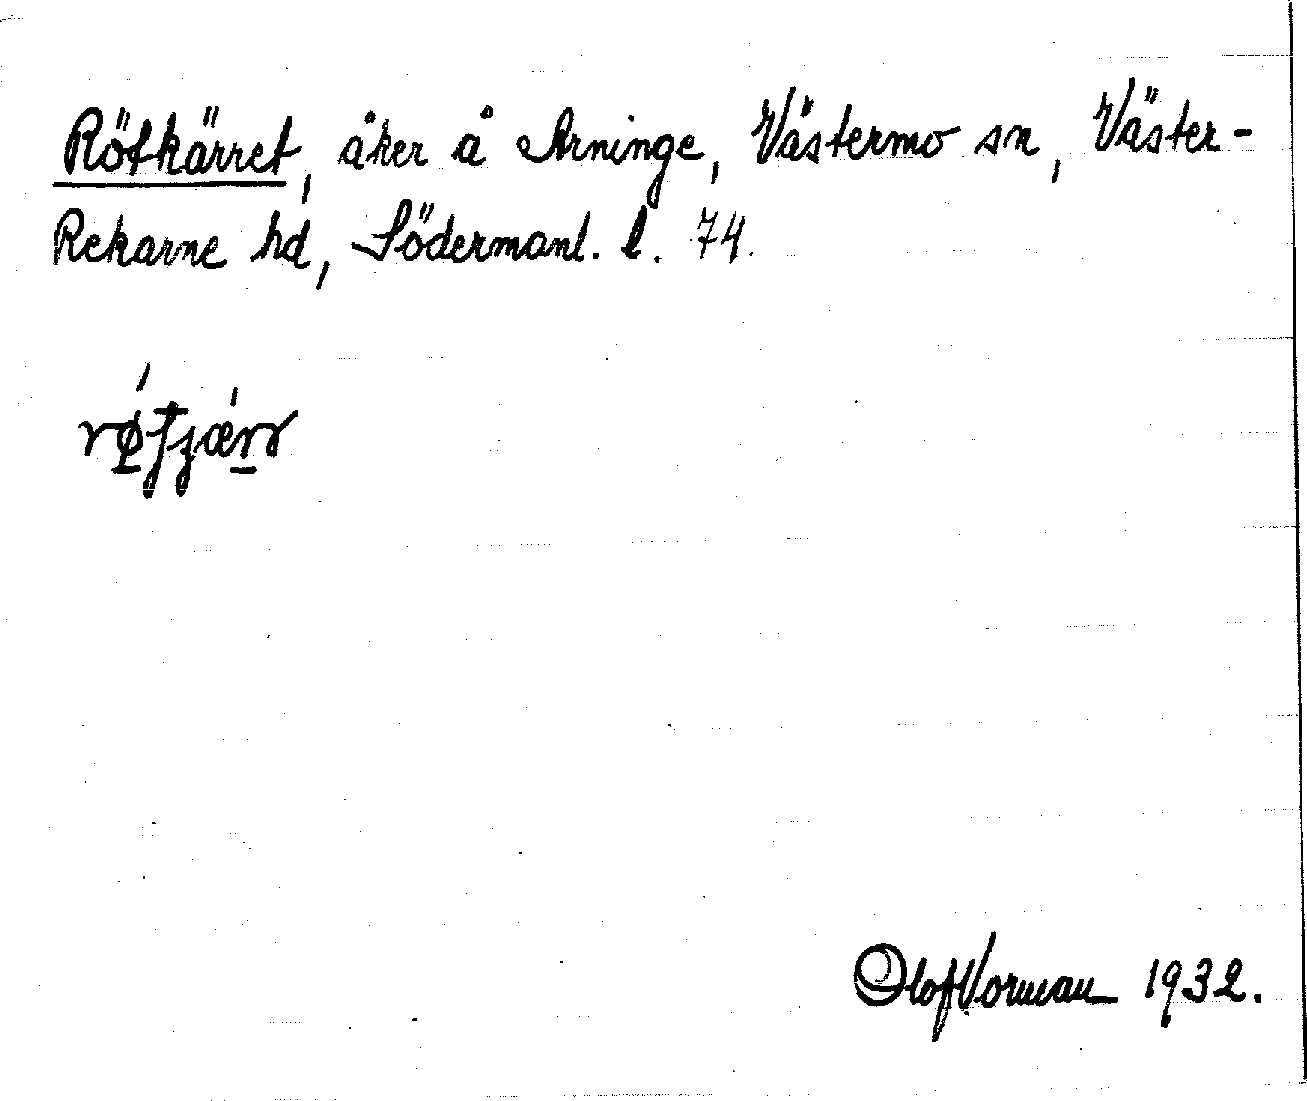 Rötkärret, åker å Arninge, Västermo sn, Väster-
Rekarne hd, Södermanl. l. 74.
Olof Vorman 1932.